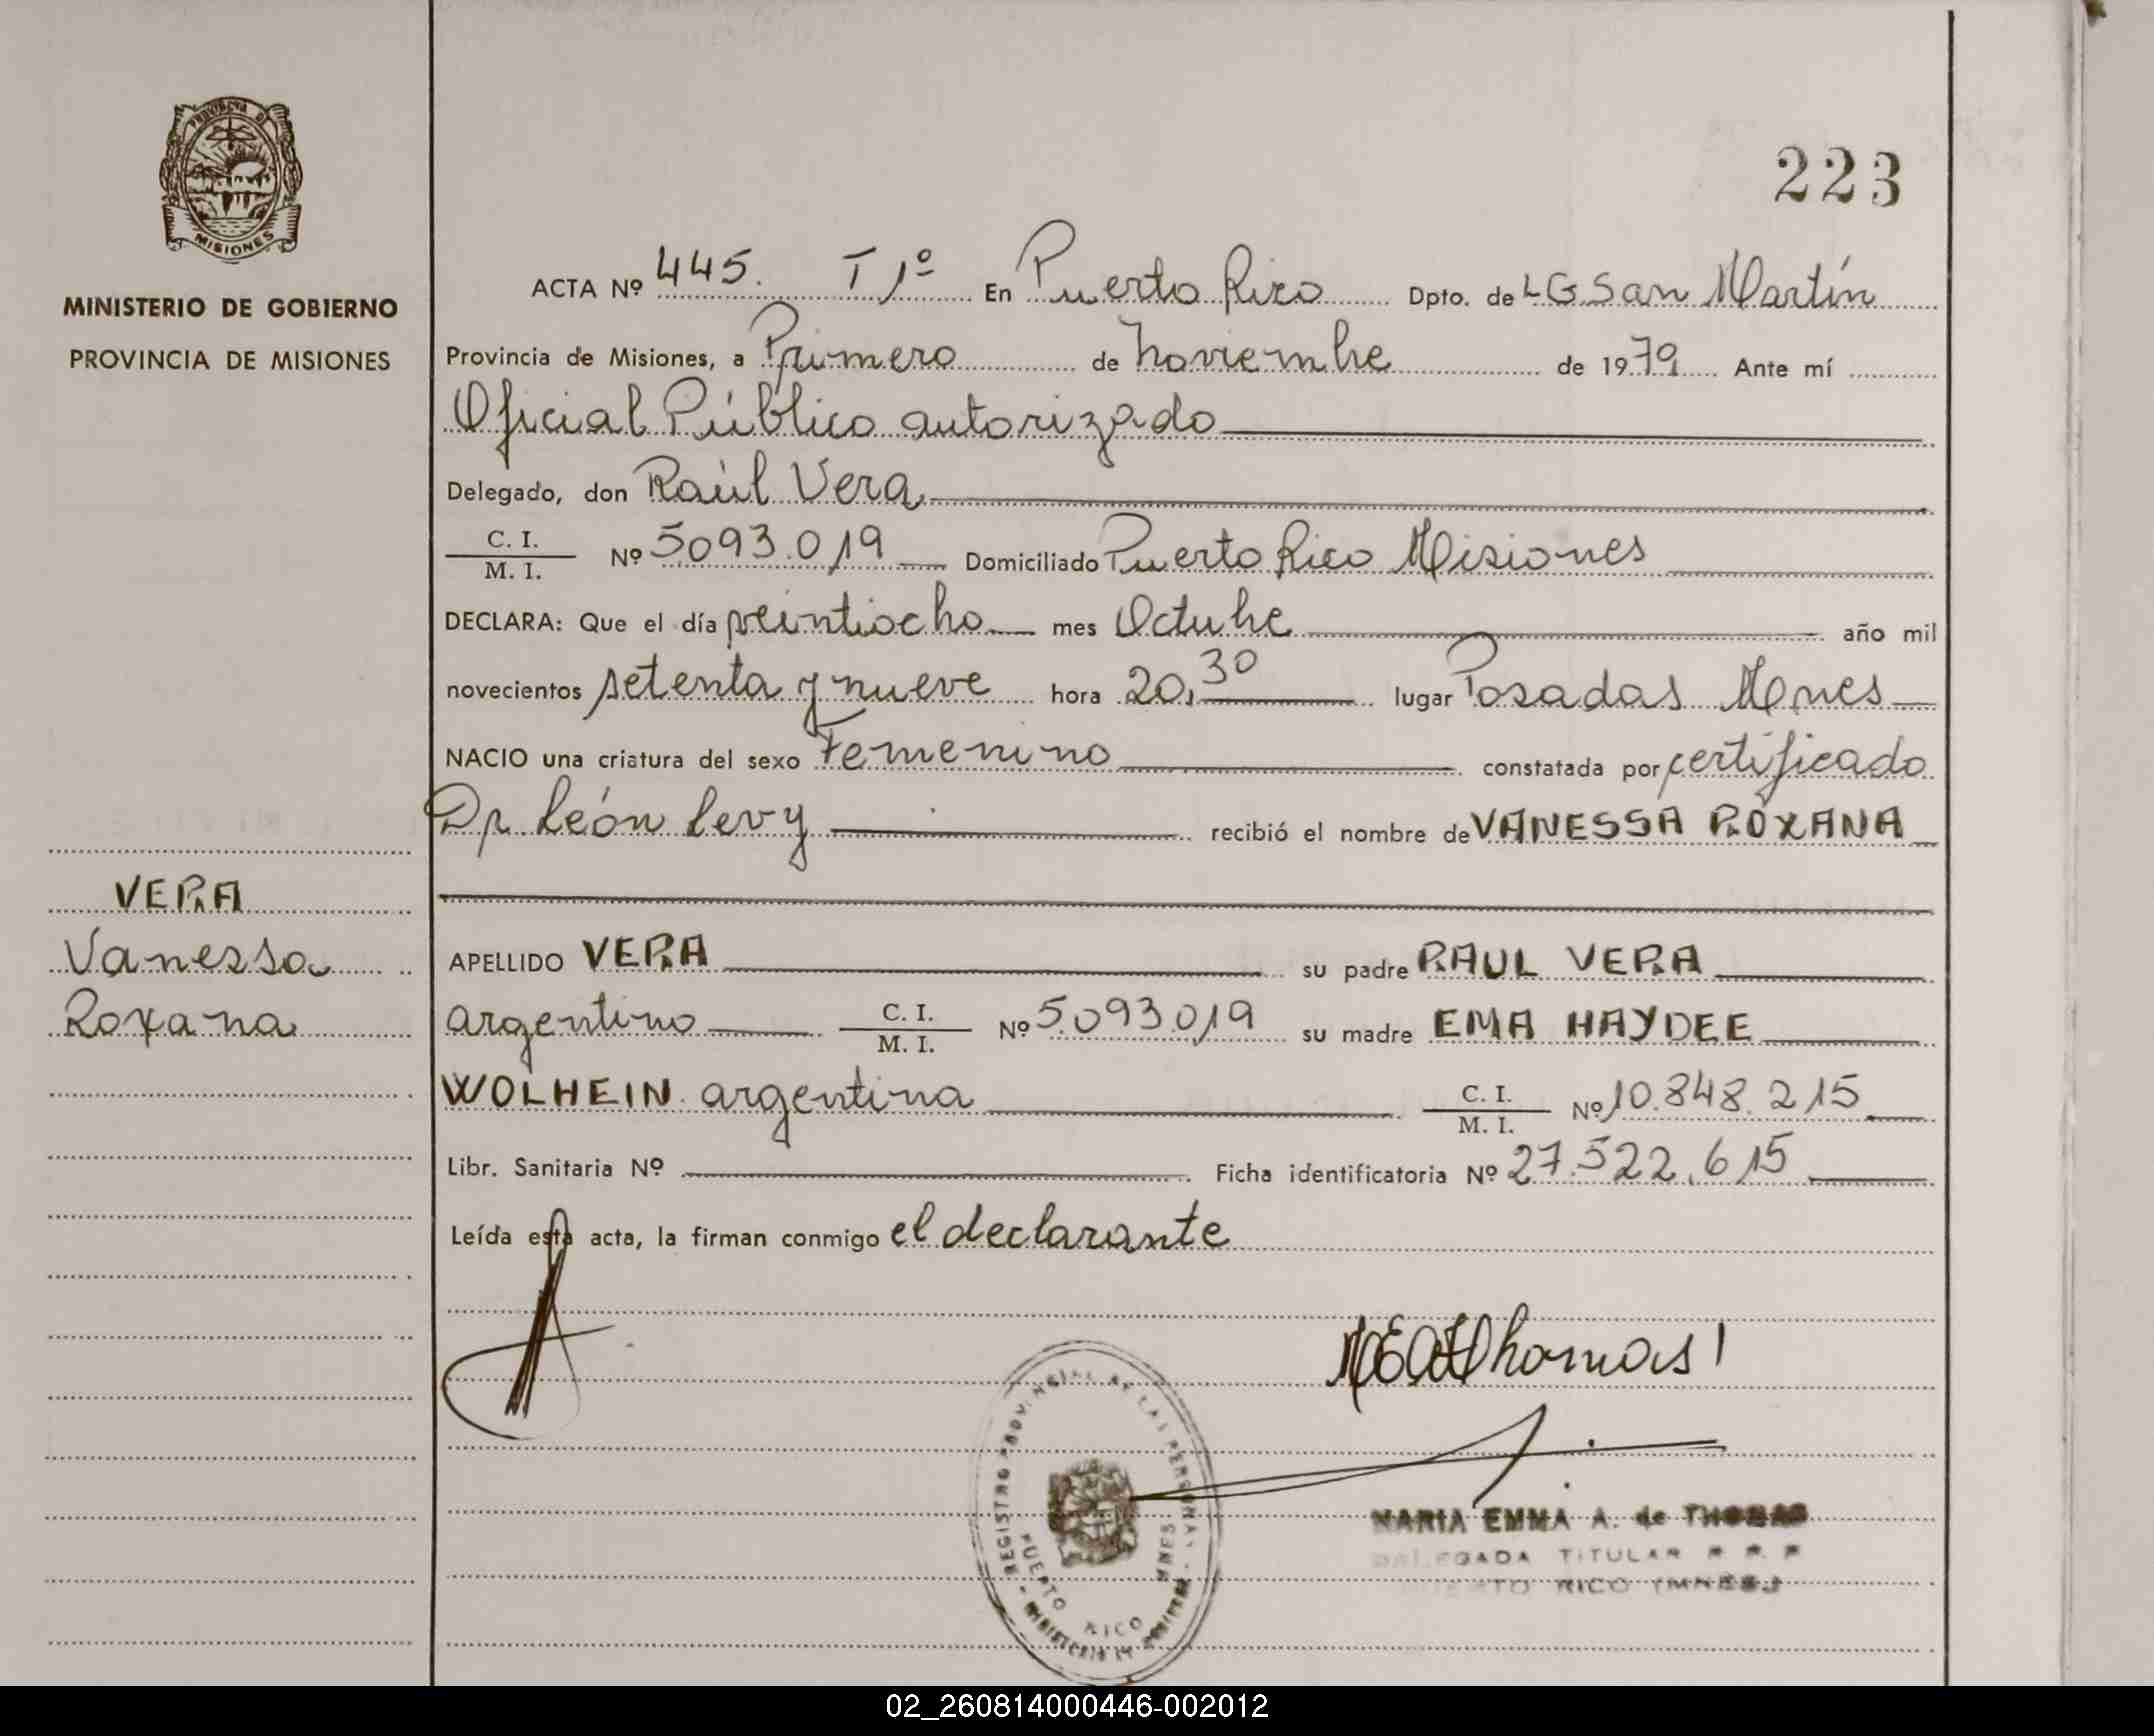 PROVINCIA DE
MISIONES
MINISTERIO DE GOBIERNO
PROVINCIA DE MISIONES
VERA
Vanessa
Roxana
223
ACTA Nº 445. T 1º En Puerto Rico Dpto. de L G San Martín
Provincia de Misiones, a Primero de Noviembre de 1979 Ante mí
Oficial Público autorizado
Delegado, don Raúl Vera
C. I. / M. I. Nº 5.093.019 Domiciliado Puerto Rico Misiones
DECLARA: Que el día veintiocho mes Octubre año mil
novecientos setenta y nueve hora 20,30 lugar Posadas Mnes
NACIO una criatura del sexo Femenino constatada por certificado
Dr León Levy recibió el nombre de VANESSA ROXANA
APELLIDO VERA su padre RAUL VERA
argentino C. I. / M. I. Nº 5.093.019 su madre EMA HAYDEE
WOLHEIN argentina C. I. / M. I. Nº 10.848.215
Libr. Sanitaria Nº Ficha identificatoria Nº 27.522.615
Leída esta acta, la firman conmigo el declarante
REGISTRO PROVINCIAL DE LAS PERSONAS
PUERTO RICO MNES
MINISTERIO DE GOBIERNO
MARIA EMMA A. de THOMAS
DELEGADA TITULAR R. P. P.
PUERTO RICO (MNES.)
02_260814000446-002012